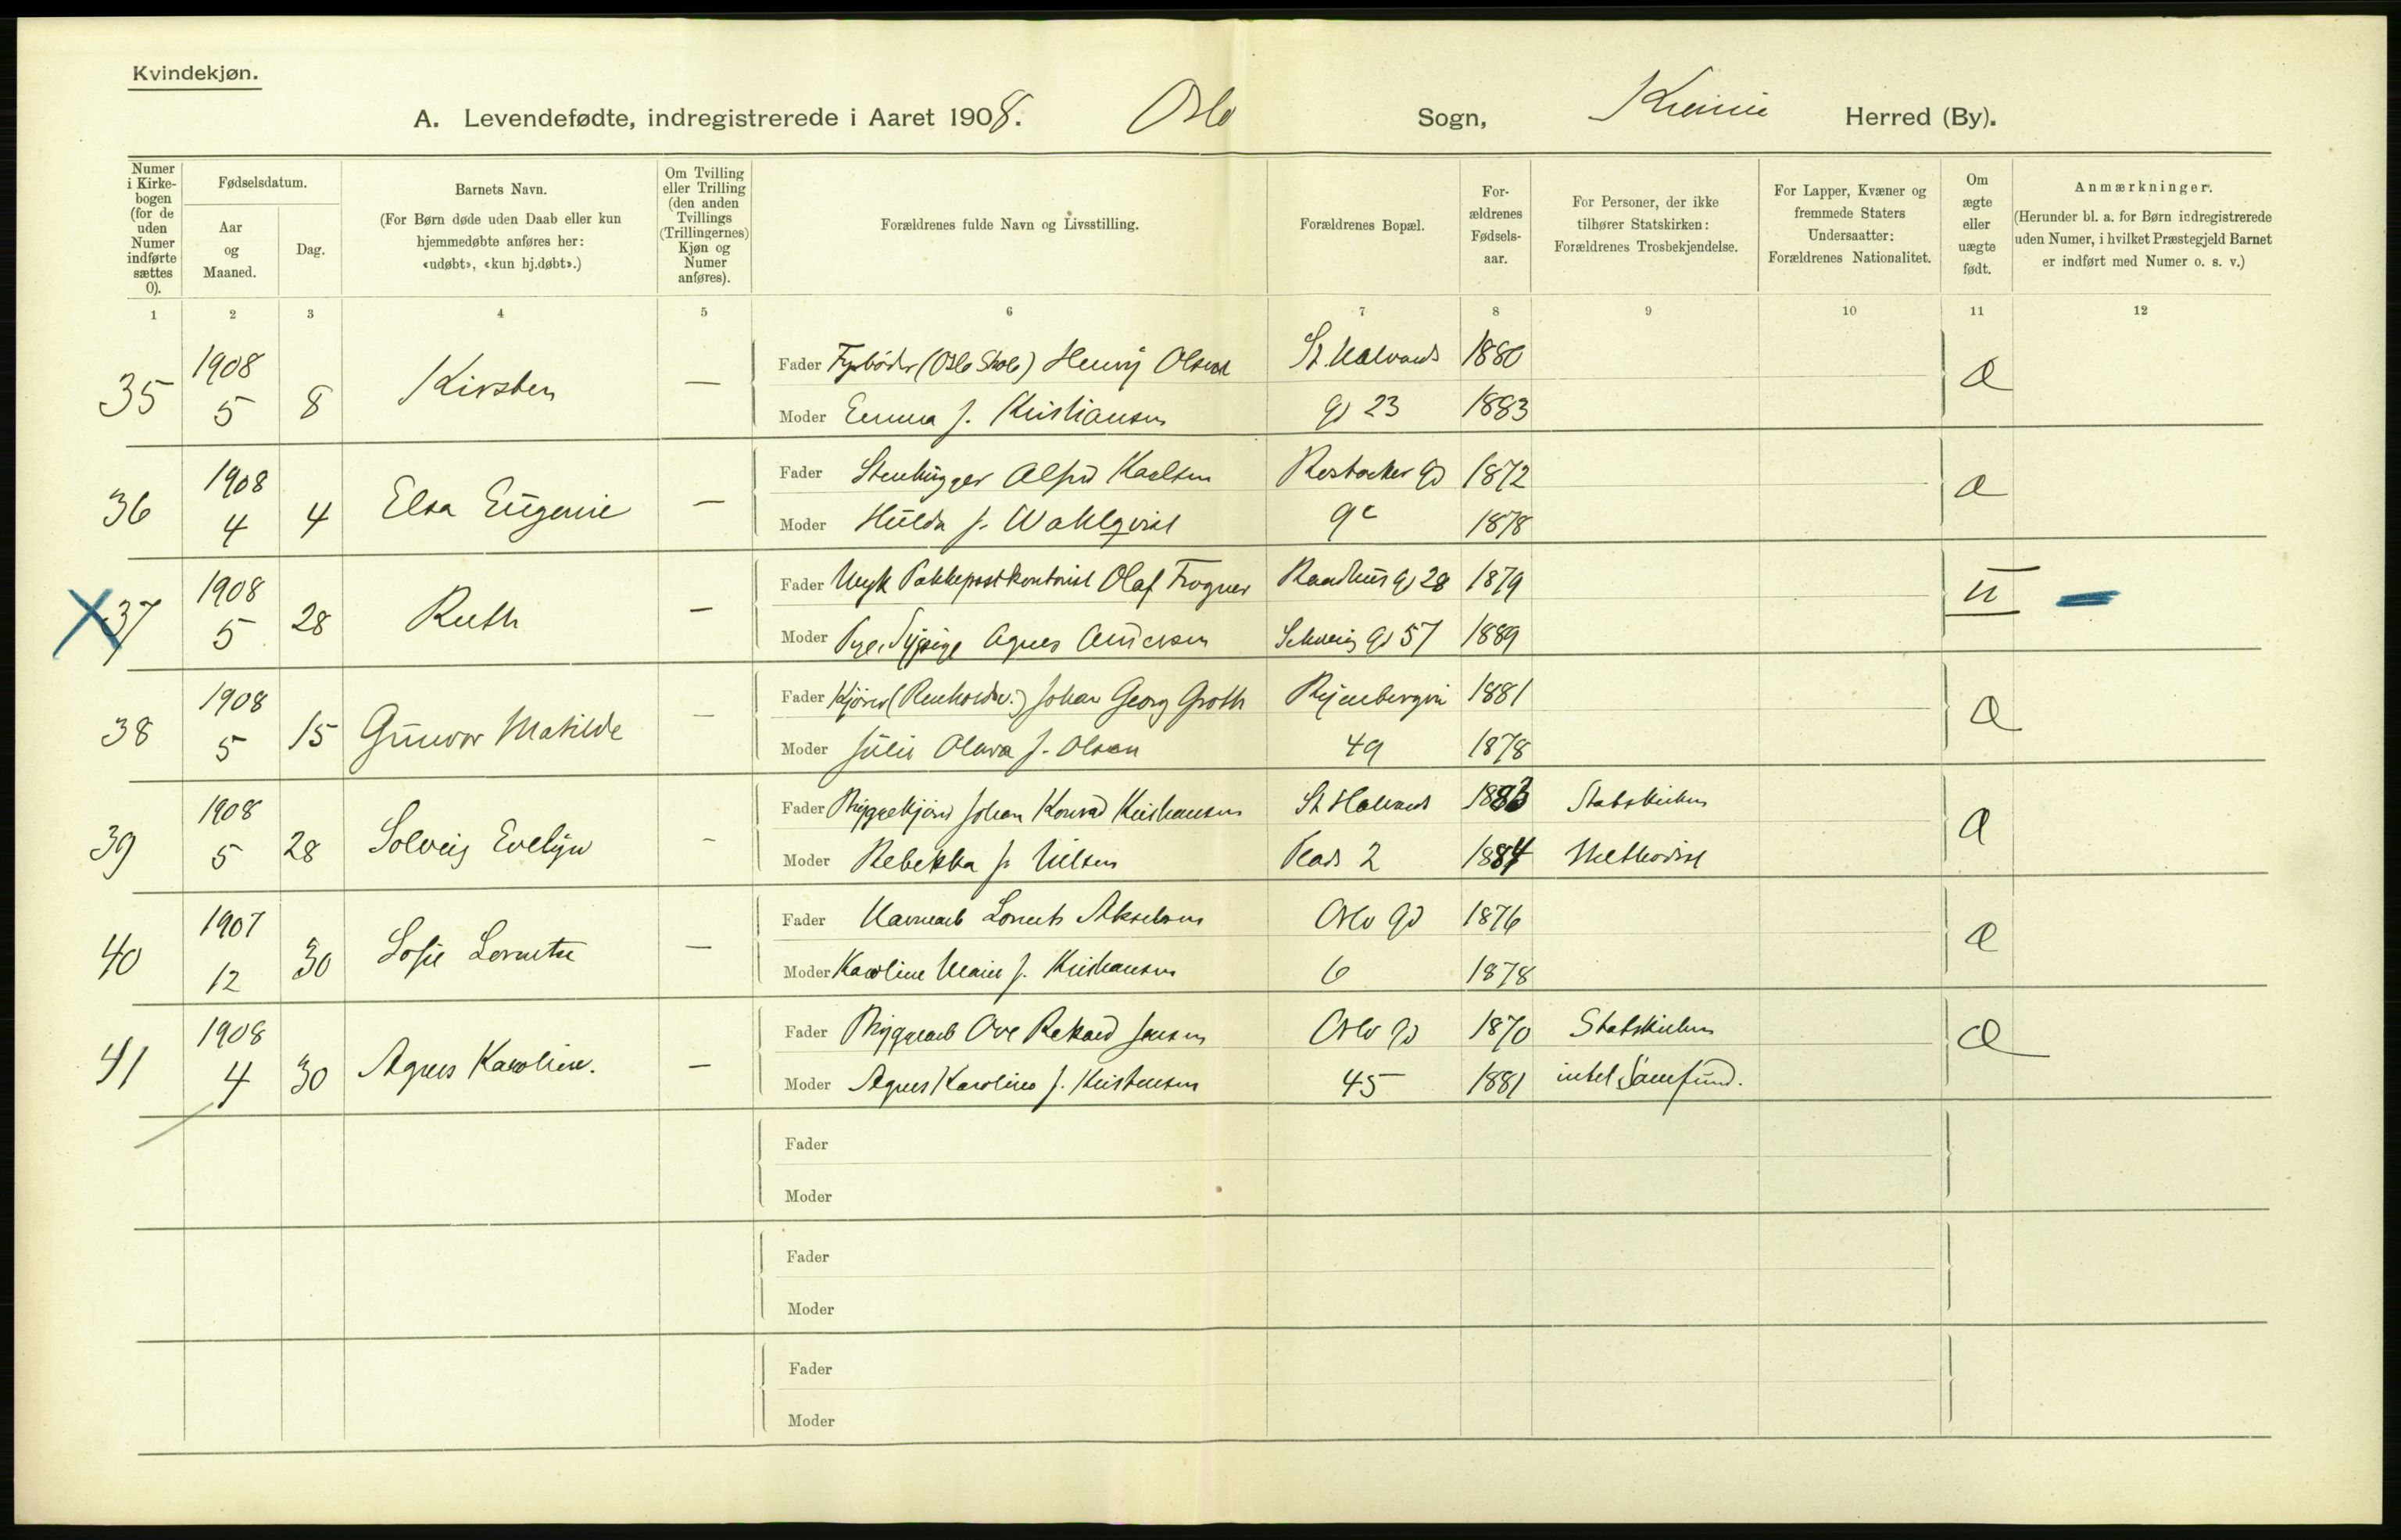 Kvindekjøn.
A. Levendefødte, indregistrerede i Aaret 1908. Oslo Sogn, Herred (By).
Numer i Kirkebogen (for de uden Numer indførte sættes 0).
Fødselsdatum.
Aar og Maaned.
Dag.
Barnets Navn.
(For Børn døde uden Daab eller kun hjemmedøbte anføres her: «udøbt», «kun hj.døbt».)
Om Tvilling eller Trilling (den anden Tvillings (Trillingernes) Kjøn og Numer anføres).
Forældrenes fulde Navn og Livsstilling.
Forældrenes Bopæl.
Forældrenes Fødselsaar.
For Personer, der ikke tilhører Statskirken: Forældrenes Trosbekjendelse.
For Lapper, Kvæner og fremmede Staters Undersaatter: Forældrenes Nationalitet.
Om ægte eller uægte født.
Anmærkninger.
(Herunder bl. a. for Børn indregistrerede uden Numer, i hvilket Præstegjeld Barnet er indført med Numer o. s. v.)
1 2 3 4 5 6 7 8 9 10 11 12
35 1908 5 8 Kirsten —
Fader Fyrbøder (Oslo Skole) Henrij Olsen St. Halvards 1880 æ
Moder Emma f. Kristiansen gd 23 1883
36 1908 4 4 Elsa Eugenie —
Fader Stenhugger Alfred Karlsen Rostocker gd 1872 æ
Moder Hulda f. Wahlqvist 9c 1878
37 1908 5 28 Ruth —
Fader Ugk Pakkepostkontorist Olaf Frogner Raadhus gd 28 1879 u —
Moder Agnes Andersen Schweig gd 57 1889
38 1908 5 15 Gunvor Matilde —
Fader Kjører (Renholdsv.) Johan Georg Groth 1881 æ
Moder Julie Olava f. Olsen 49 1878
39 1908 5 28 Solveig Evelyn -
Fader Bryggekjører Johan Konrad Kristiansen St Halvards 1883 Statskirken æ
Moder Rebekka f. Nilsen Plads 2 1884 Methodist
40 1907 12 30 Sofie Lorentse —
Fader Havnearb Lorents Akselsen Oslo gd 1876 æ
Moder Karoline Marie f. Kristiansen 6 1878
41 1908 4 30 Agnes Karoline. —
Fader Bryggearb Ove Rikard Jensen Oslo gd 1870 Statskirken æ
Moder Agnes Karoline f. Kristensen 45 1881 intet Samfund.
Fader
Moder
Fader
Moder
Fader
Moder